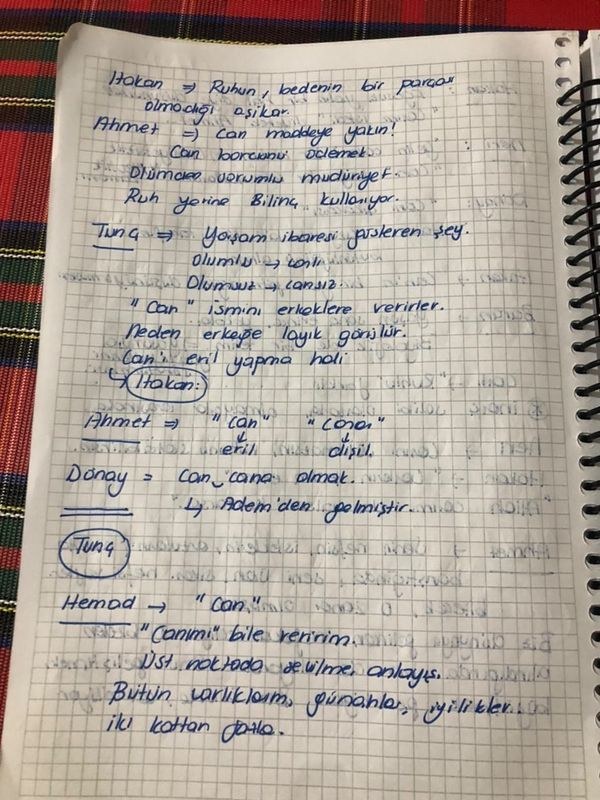 Hakan ⇒ Ruhun, bedenin bir parçası
olmadığı aşikar.
Ahmet ⇒ Can maddeye yakın!
Can borcunu ödemek
Ölümden sorumlu müdüriyet
Ruh yerine Bilinç kullanıyor.
Tunç ⇒ Yaşam ibaresi gösteren şey.
olumlu → canlı
Olumsuz → cansız.
"Can" ismini erkeklere verirler.
Neden erkeğe layık görülür.
Can'ı eril yapma hali
↳ Hakan:
Ahmet ⇒ "Can" "Canan"
↓ ↓
eril dişil.
Donay = Can cana olmak.
↳ Adem'den gelmiştir.
Tunç
Hemad → "Can"
"Canımı" bile veririm.
Üst noktada sevilme anlayış.
Bütün varlıklarım, günahlar, iyilikler.
iki kattan fazla.